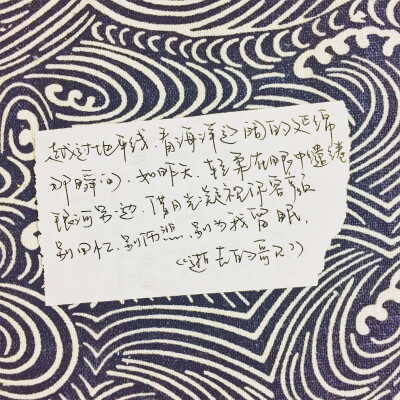 越过地平线.看海洋辽阔的延绵
那瞬间.如昨天.轻柔在眼中缱绻
银河另边.借月光凝视你容颜
别回忆.别伤悲.别为我留眠.
《逝去的歌》